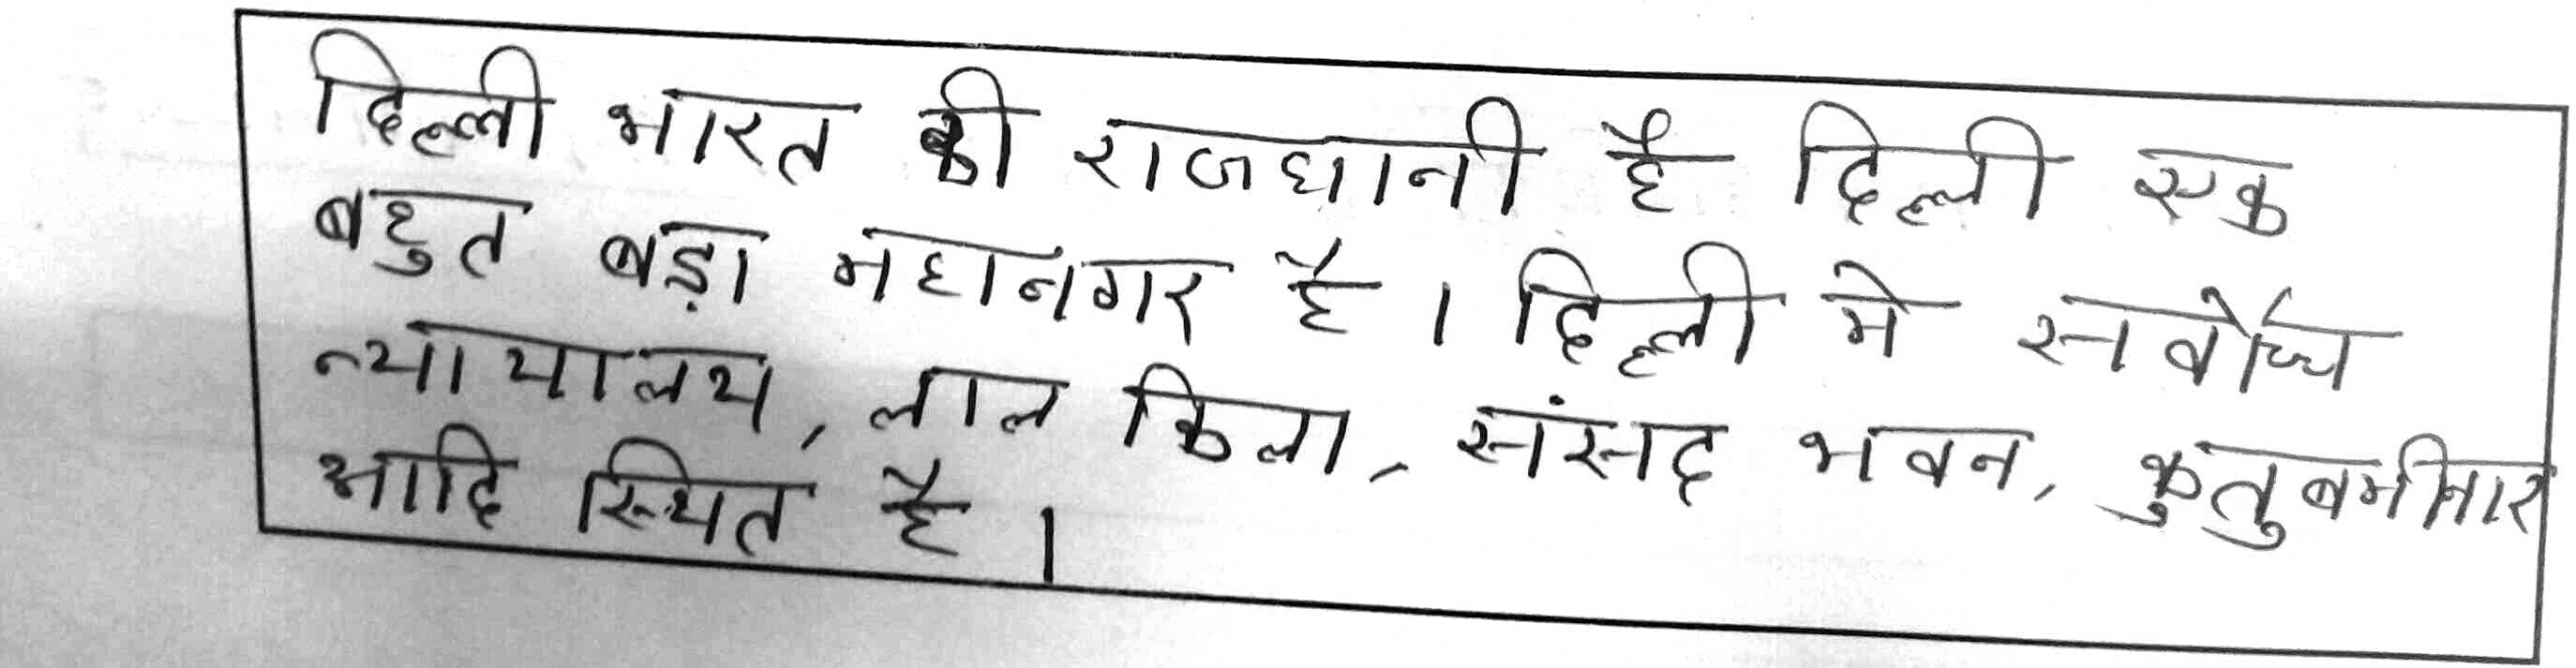 दिल्ली भारत की राजधानी है दिल्ली एक
बहुत बड़ा महानगर है । दिल्ली मे सर्वोच्च
न्यायालय, लाल किला, संसद भवन, कुतुबमीनार
आदि स्थित है ।